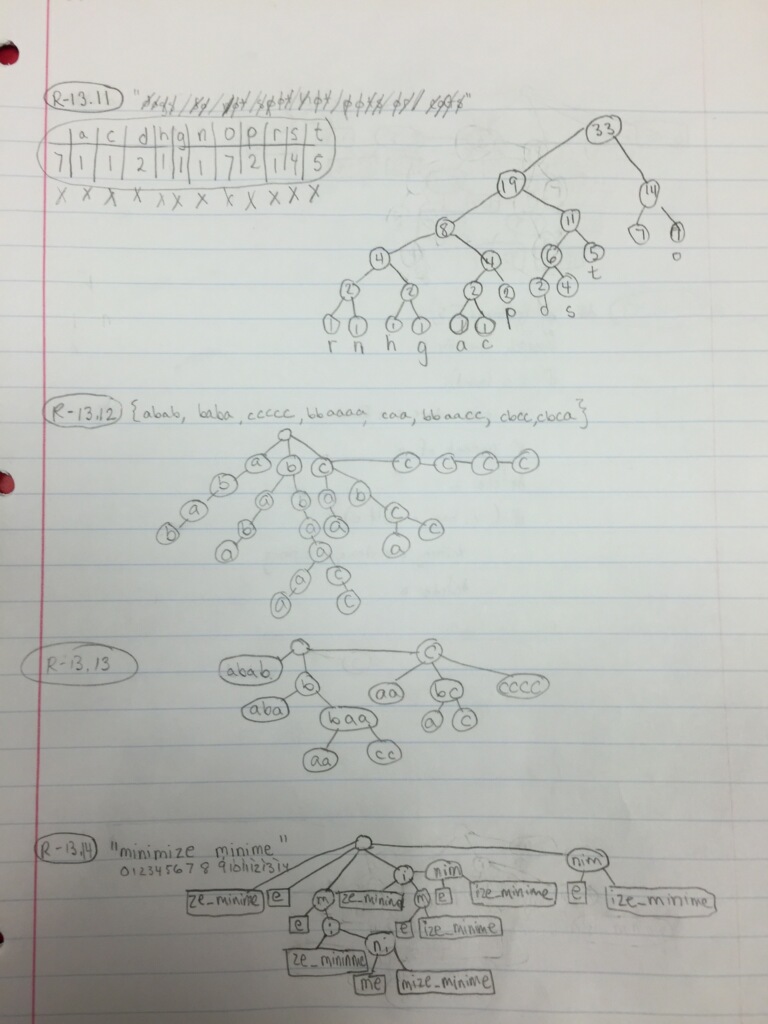 R-13.11
a c d h g n o p r s t
7 1 1 2 1 1 1 7 2 1 4 5
X X X X X X X X X X X X
33
19
14
8
11
7
4
4
6
5
o
t
2
2
2
2
2
4
1 1 1 1 1 1 p d s
r n h g a c
R-13.12 {abab, baba, ccccc, bbaaaa, caa, bbaacc, cbcc, cbca}
a b c c c c c
b a b a b
a b a a c
b a a a c
a c
a c
R-13.13
c
abab b aa bc cccc
aba baa a c
aa cc
R-13.14 "minimize minime"
0 1 2 3 4 5 6 7 8 9 10 11 12 13 14
i nim nim
ze_minime e m ze_minime m e ize_minime e ize_minime
e i e ize_minime
ze_minime ni
me mize_minime